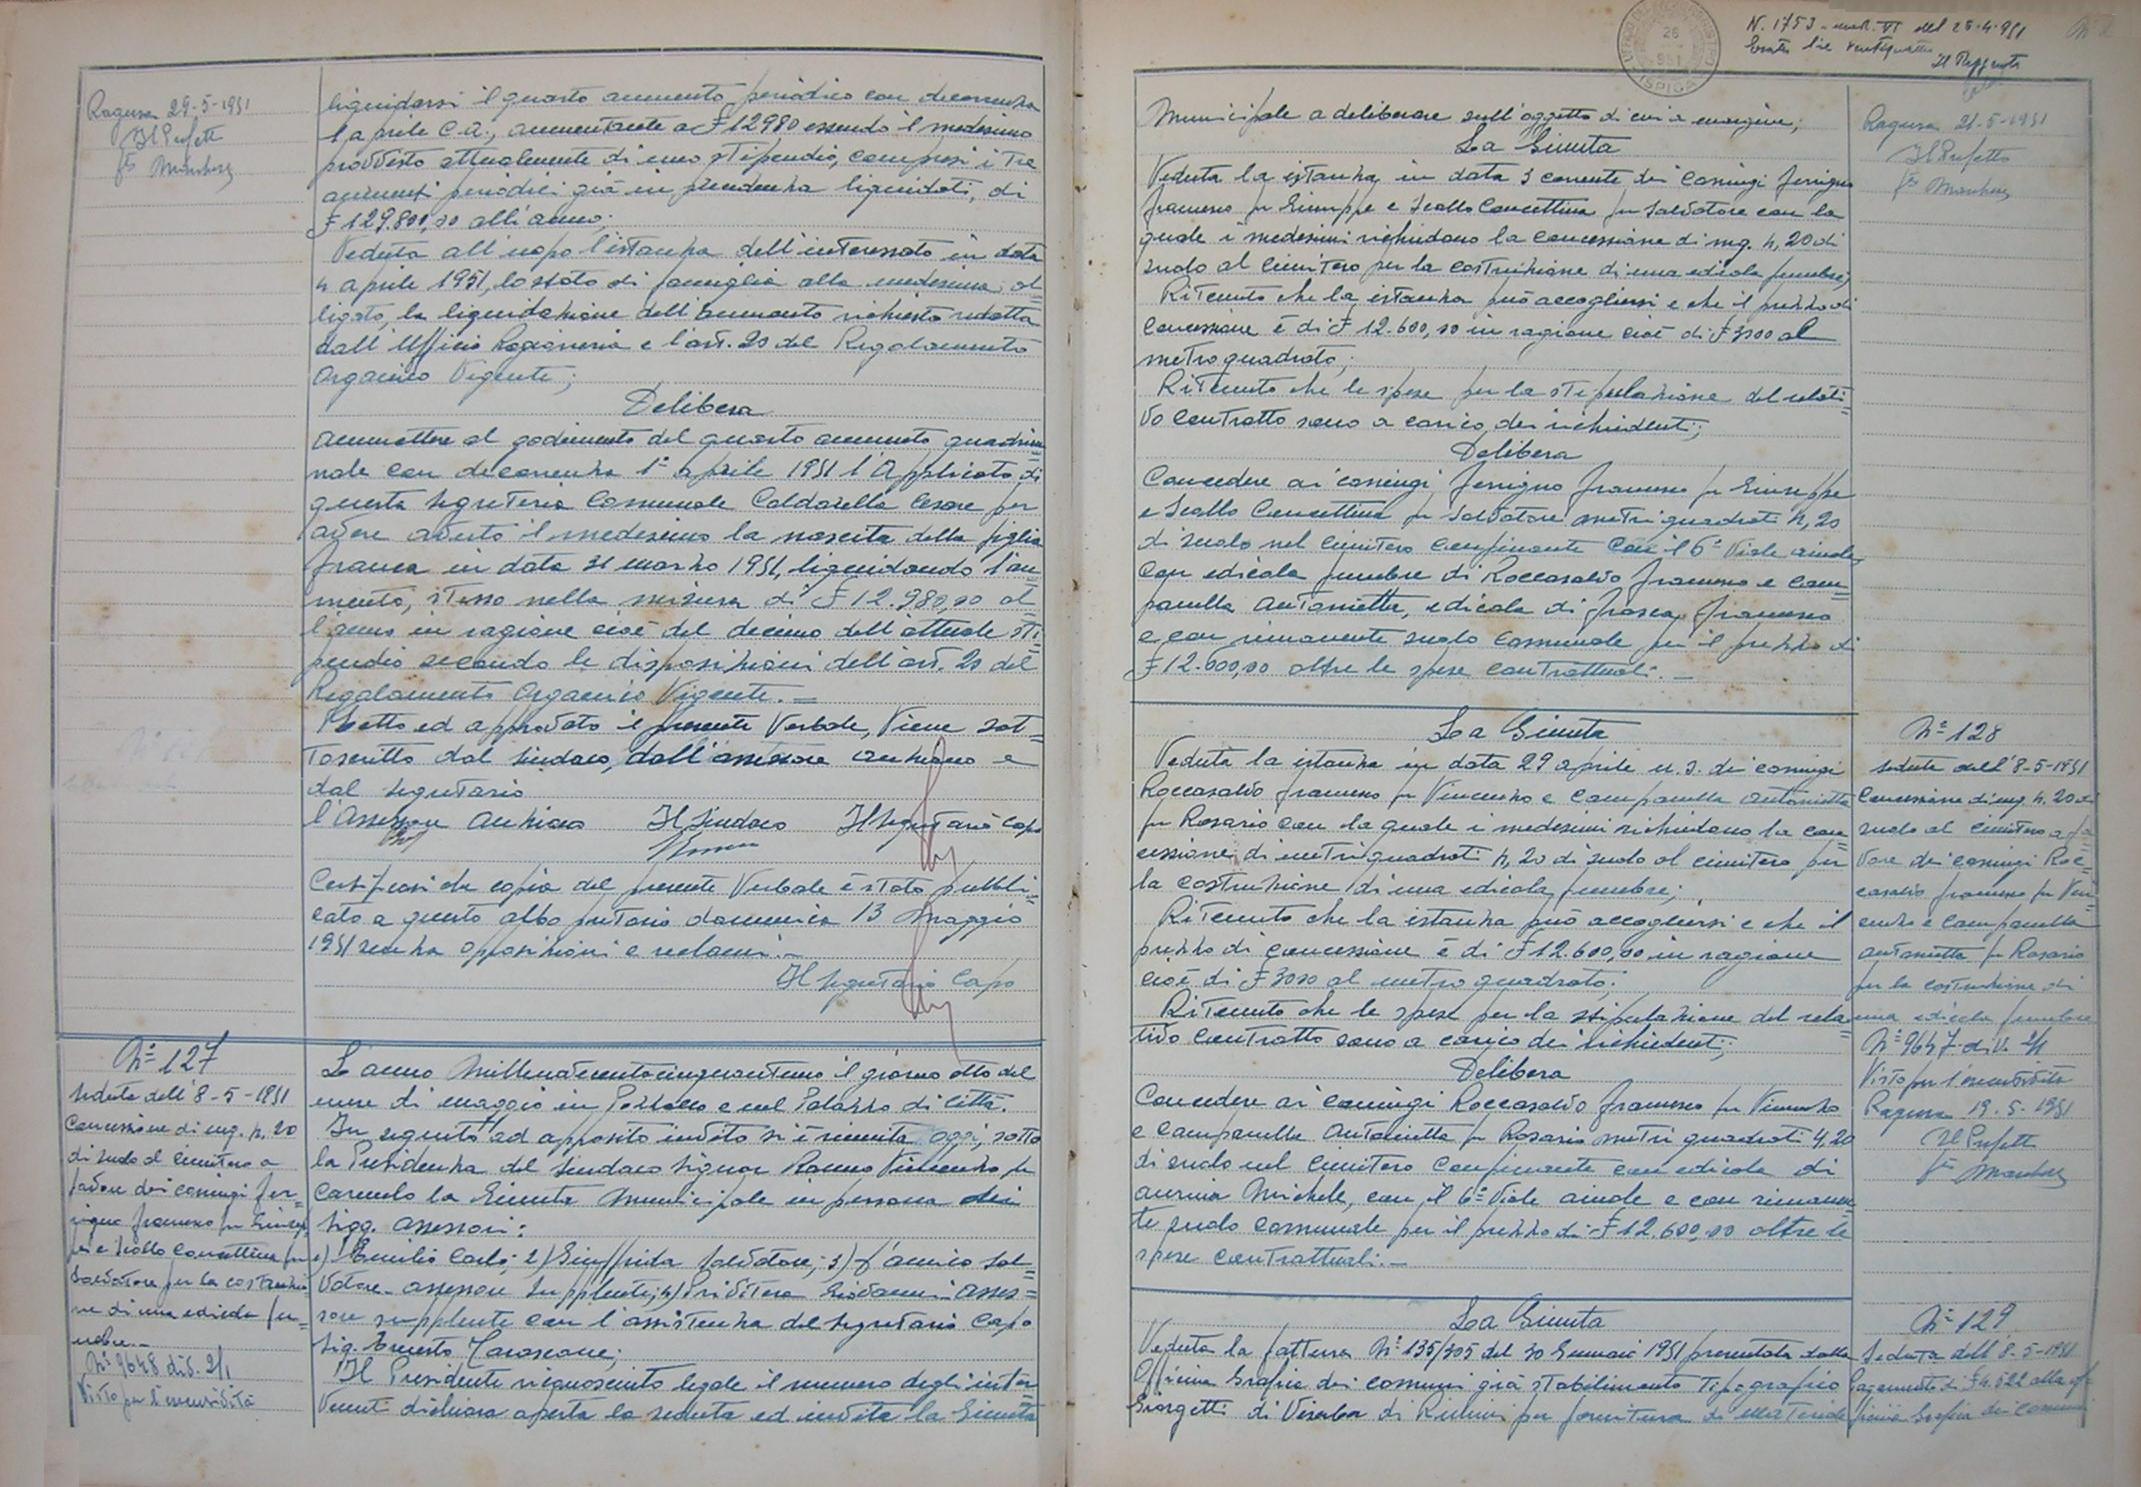 Ragusa 29-5-1951
Il Prefetto
liquidarsi il quarto aumento periodico con decorrenza
1 aprile c.a., aumentante a £ 12980 essendo il medesimo
provvisto attualmente di uno stipendio, compresi i tre
aumenti periodici già in precedenza liquidati, di
£ 129.800,00 all'anno;
Veduta all'uopo l'istanza dell'interessato in data
4 aprile 1951, lo stato di famiglia alla medesima al=
ligato, la liquidazione dell'aumento richiesto redatta
dall'Ufficio Ragioneria e l'art. 20 del Regolamento
Organico Vigente;
Delibera
Ammettere al godimento del quarto aumento quadrien=
nale con decorrenza 1° aprile 1951 l'Applicato di
questa Segreteria Comunale Caldarella Cesare per
avere avuto il medesimo la nascita della figlia
Franca in data 31 marzo 1951, liquidando l'au=
mento, stesso nella misura di £ 12.980,00 al=
l'anno in ragione cioè del decimo dell'attuale sti=
pendio secondo le disposizioni dell'art. 20 del
Regolamento Organico Vigente. =
Letto ed approvato il presente Verbale, Viene sot=
toscritto dal Sindaco, dall'assessore anziano e
dal segretario
l'Assessore Anziano Il Sindaco Il Segretario Capo
Certificasi che copia del presente Verbale è stata pubbli=
cata a questo albo pretorio domenica 13 Maggio
1951 senza opposizioni e reclami. -
Il Segretario Capo
N° 127
Seduta dell'8-5-1951
Concessione di mq. 4,20
di suolo al cimitero a
favore dei coniugi Fer=
rigno Francesco fu Giusep=
pe e Scollo Concettina fu
Salvatore per la costruzio
ne di una edicola fu=
nebre. -
N° 9648 div. 2/1
Visto per l'esecutività
L'anno Millenovecentocinquantuno il giorno otto del
mese di maggio in Pozzallo e nel Palazzo di Città.
In seguito ad apposito invito si è riunita oggi, sotto
la Presidenza del Sindaco Signor Vincenzo fu
Carmelo la Giunta Municipale in persona dei
Sigg. assessori:
1) Carlo; 2) Giuffrida Salvatore; 3) D'amico Sal=
vatore - assessore Supplente; 4) Privitera Giovanni - Asses=
sore supplente con l'assistenza del Segretario Capo
Sig. Ernesto
Il Presidente riconosciuto legale il numero degli inter=
venuti dichiara aperta la seduta ed invita la Giunta
26
951
ISPICA
N. 1753 del 25-4-951
Il Reggente
Municipale a deliberare sull'oggetto di cui a margine;
La Giunta
Veduta la istanza in data 3 corrente dei coniugi Ferrigno
Francesco fu Giuseppe e Scollo Concettina fu Salvatore con la
quale i medesimi richiedono la concessione di mq. 4,20 di
suolo al cimitero per la costruzione di una edicola funebre;
Ritenuto che la istanza può accogliersi e che il prezzo di
concessione è di £ 12.600,00 in ragione cioè di £ 3000 al
metro quadrato;
Ritenuto che le spese per la stipulazione del relati=
vo contratto sono a carico dei richiedenti;
Delibera
Concedere ai coniugi Ferrigno Francesco fu Giuseppe
e Scollo Concettina fu Salvatore metri quadrati 4,20
di suolo nel cimitero confinante con il 6° Viale
con edicola funebre di Roccasalvo Francesco e Cam=
panella Antonietta, edicola di Frasca Francesco
e con rimanente suolo comunale per il prezzo di
£ 12.600,00 oltre le spese contrattuali. -
Ragusa 21-5-1951
Il Prefetto
La Giunta
Veduta la istanza in data 29 aprile u.s. dei coniugi
Roccasalvo Francesco fu Vincenzo e Campanella Antonietta
fu Rosario con la quale i medesimi richiedono la con
cessione di metri quadrati 4,20 di suolo al cimitero per
la costruzione di una edicola funebre;
Ritenuto che la istanza può accogliersi e che il
prezzo di concessione è di £ 12.600,00 in ragione
cioè di £ 3000 al metro quadrato;
Ritenuto che le spese per la stipulazione del rela=
tivo contratto sono a carico dei richiedenti;
Delibera
Concedere ai coniugi Roccasalvo Francesco fu Vincenzo
e Campanella Antonietta fu Rosario metri quadrati 4,20
di suolo nel cimitero confinante con edicola di
Michele, con il 6° Viale e con rimanen=
te suolo comunale per il prezzo di £ 12.600,00 oltre le
spese contrattuali. -
N° 128
Seduta dell'8-5-1951
Concessione di mq. 4,20 di
suolo al cimitero a fa
vore dei coniugi Roc=
casalvo Francesco fu Vin=
cenzo e Campanella
Antonietta fu Rosario
per la costruzione di
una edicola funebre
N° 9647 div. 2/1
Visto per l'esecutività
Ragusa 19-5-1951
Il Prefetto
La Giunta
Veduta la fattura N° 135/305 del 30 Gennaio 1951 presentata dalla
Officina Grafica dei comuni già stabilimento Tipografico
Giorgetti di Viserba di Rimini per fornitura di materiale
N° 129
Seduta dell'8-5-1951
Pagamento di £ 4.522 alla of=
ficina Grafica dei Comuni